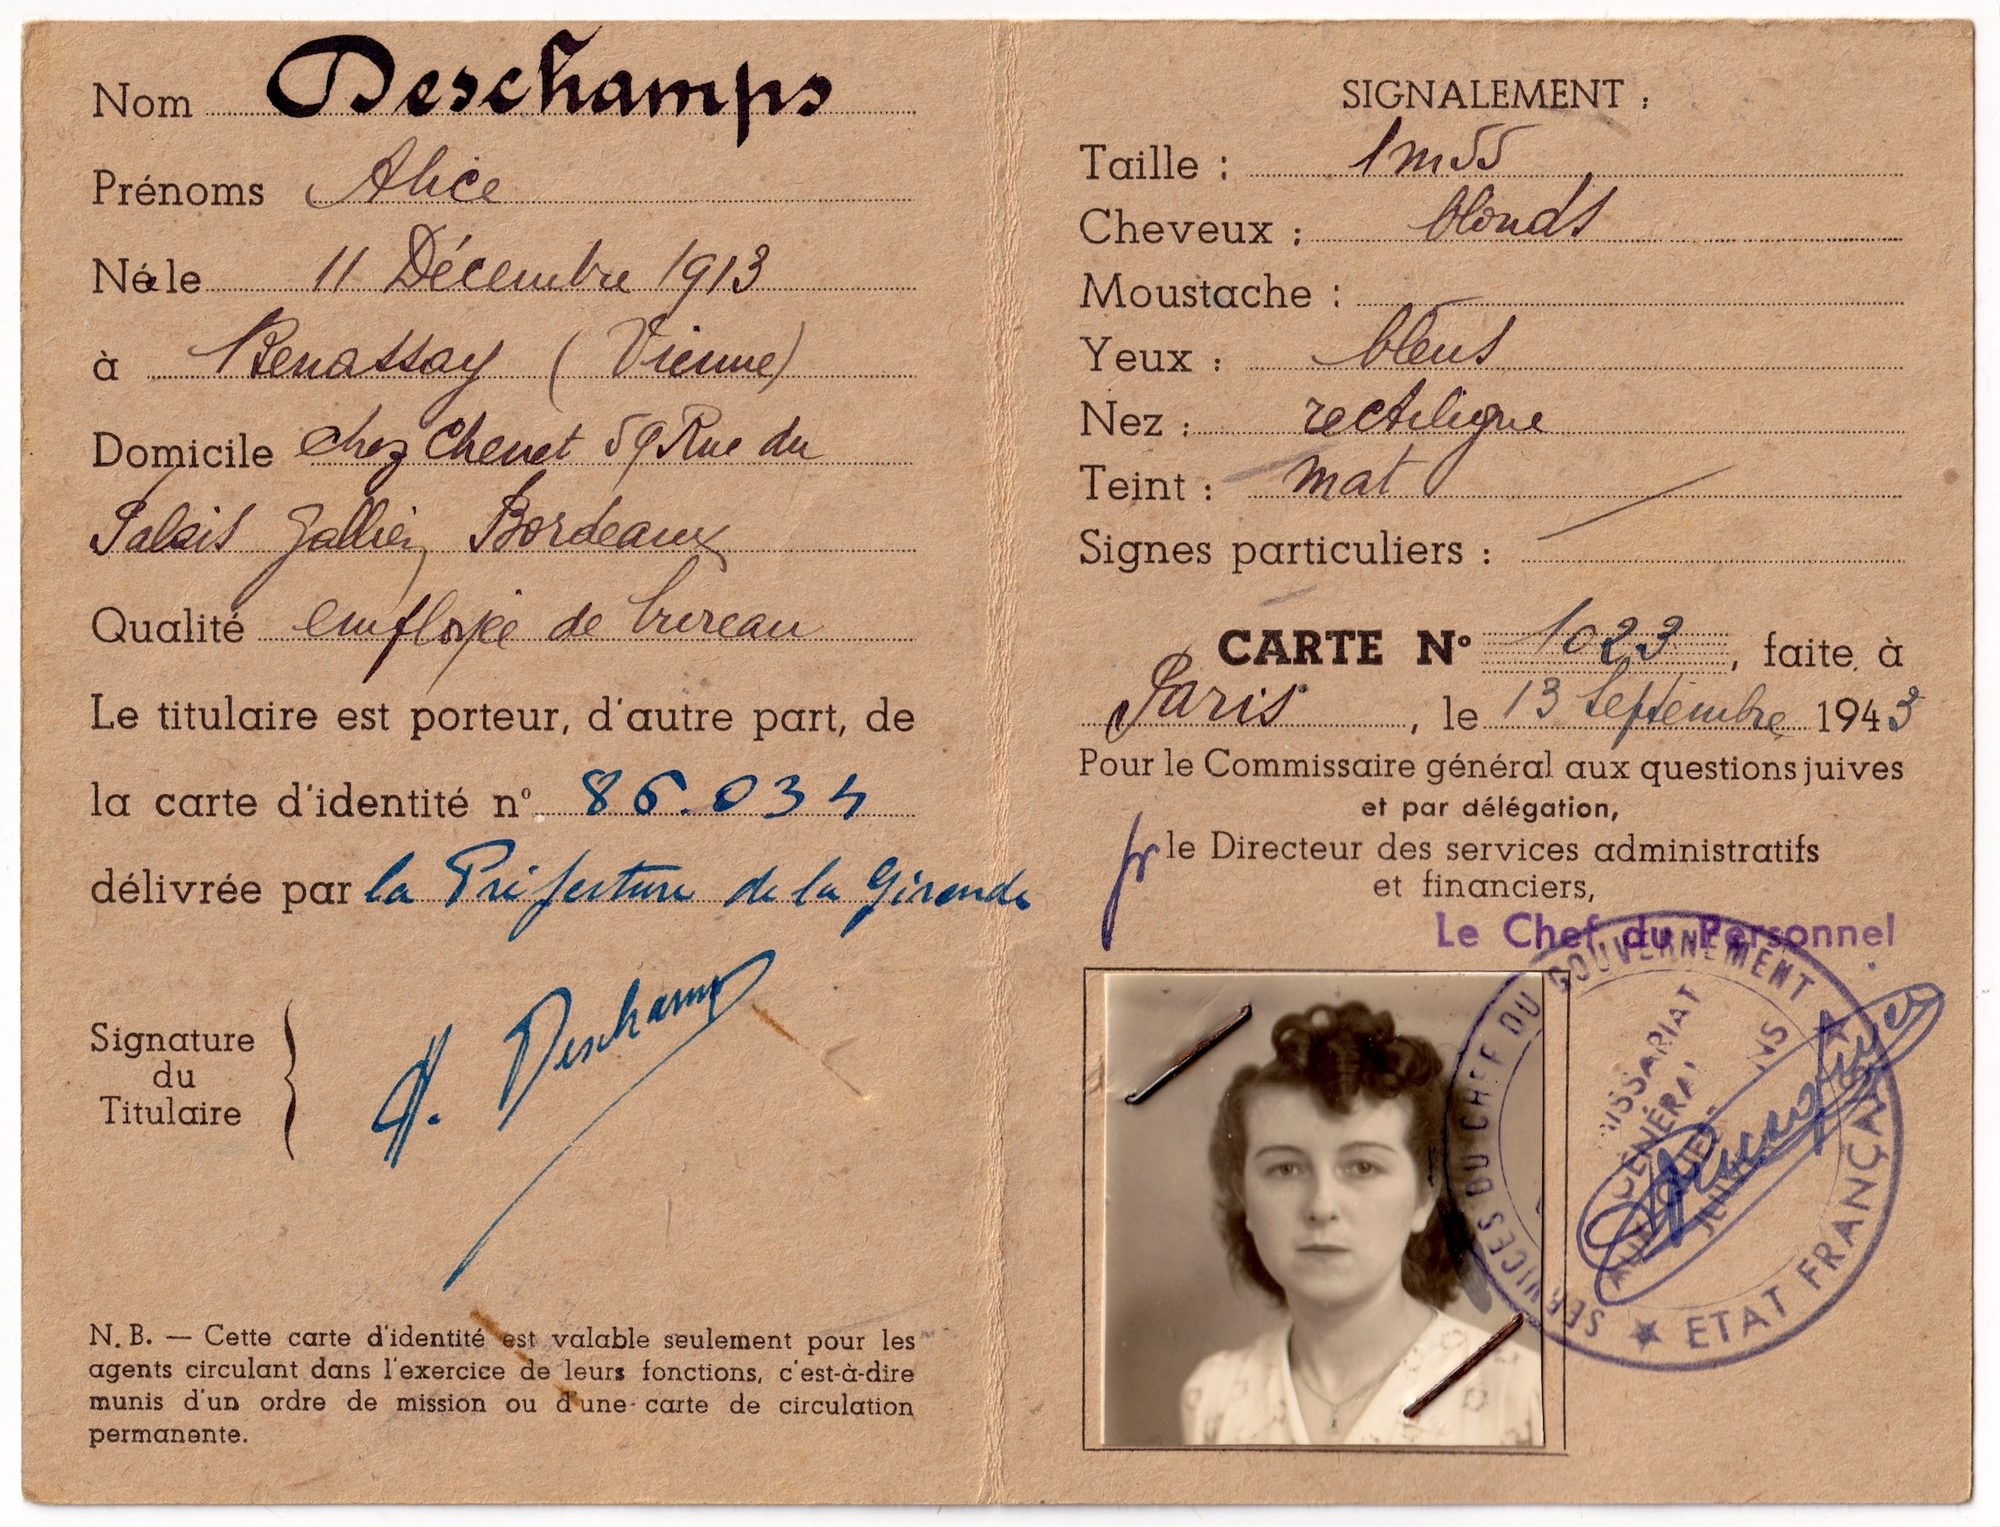 Nom Deschamps
Prénoms Alice
Née le 11 Décembre 1913
à Benassay (Vienne)
Domicile chez Chenet 59 Rue du
Palais Gallien Bordeaux
Qualité employée de bureau
Le titulaire est porteur, d'autre part, de
la carte d'identité n° 86.034
délivrée par la Préfecture de la Gironde
Signature
du
Titulaire
A. Deschamps
N. B. — Cette carte d'identité est valable seulement pour les
agents circulant dans l'exercice de leurs fonctions, c'est-à-dire
munis d'un ordre de mission ou d'une carte de circulation
permanente.
SIGNALEMENT :
Taille : 1m55
Cheveux : blonds
Moustache :
Yeux : bleus
Nez : rectiligne
Teint : mat
Signes particuliers :
CARTE N° 1023, faite à
Paris, le 13 Septembre 1943
Pour le Commissaire général aux questions juives
et par délégation,
pr le Directeur des services administratifs
et financiers,
Le Chef du Personnel
SERVICES DU CHEF DU GOUVERNEMENT
★ ETAT FRANÇAIS ★